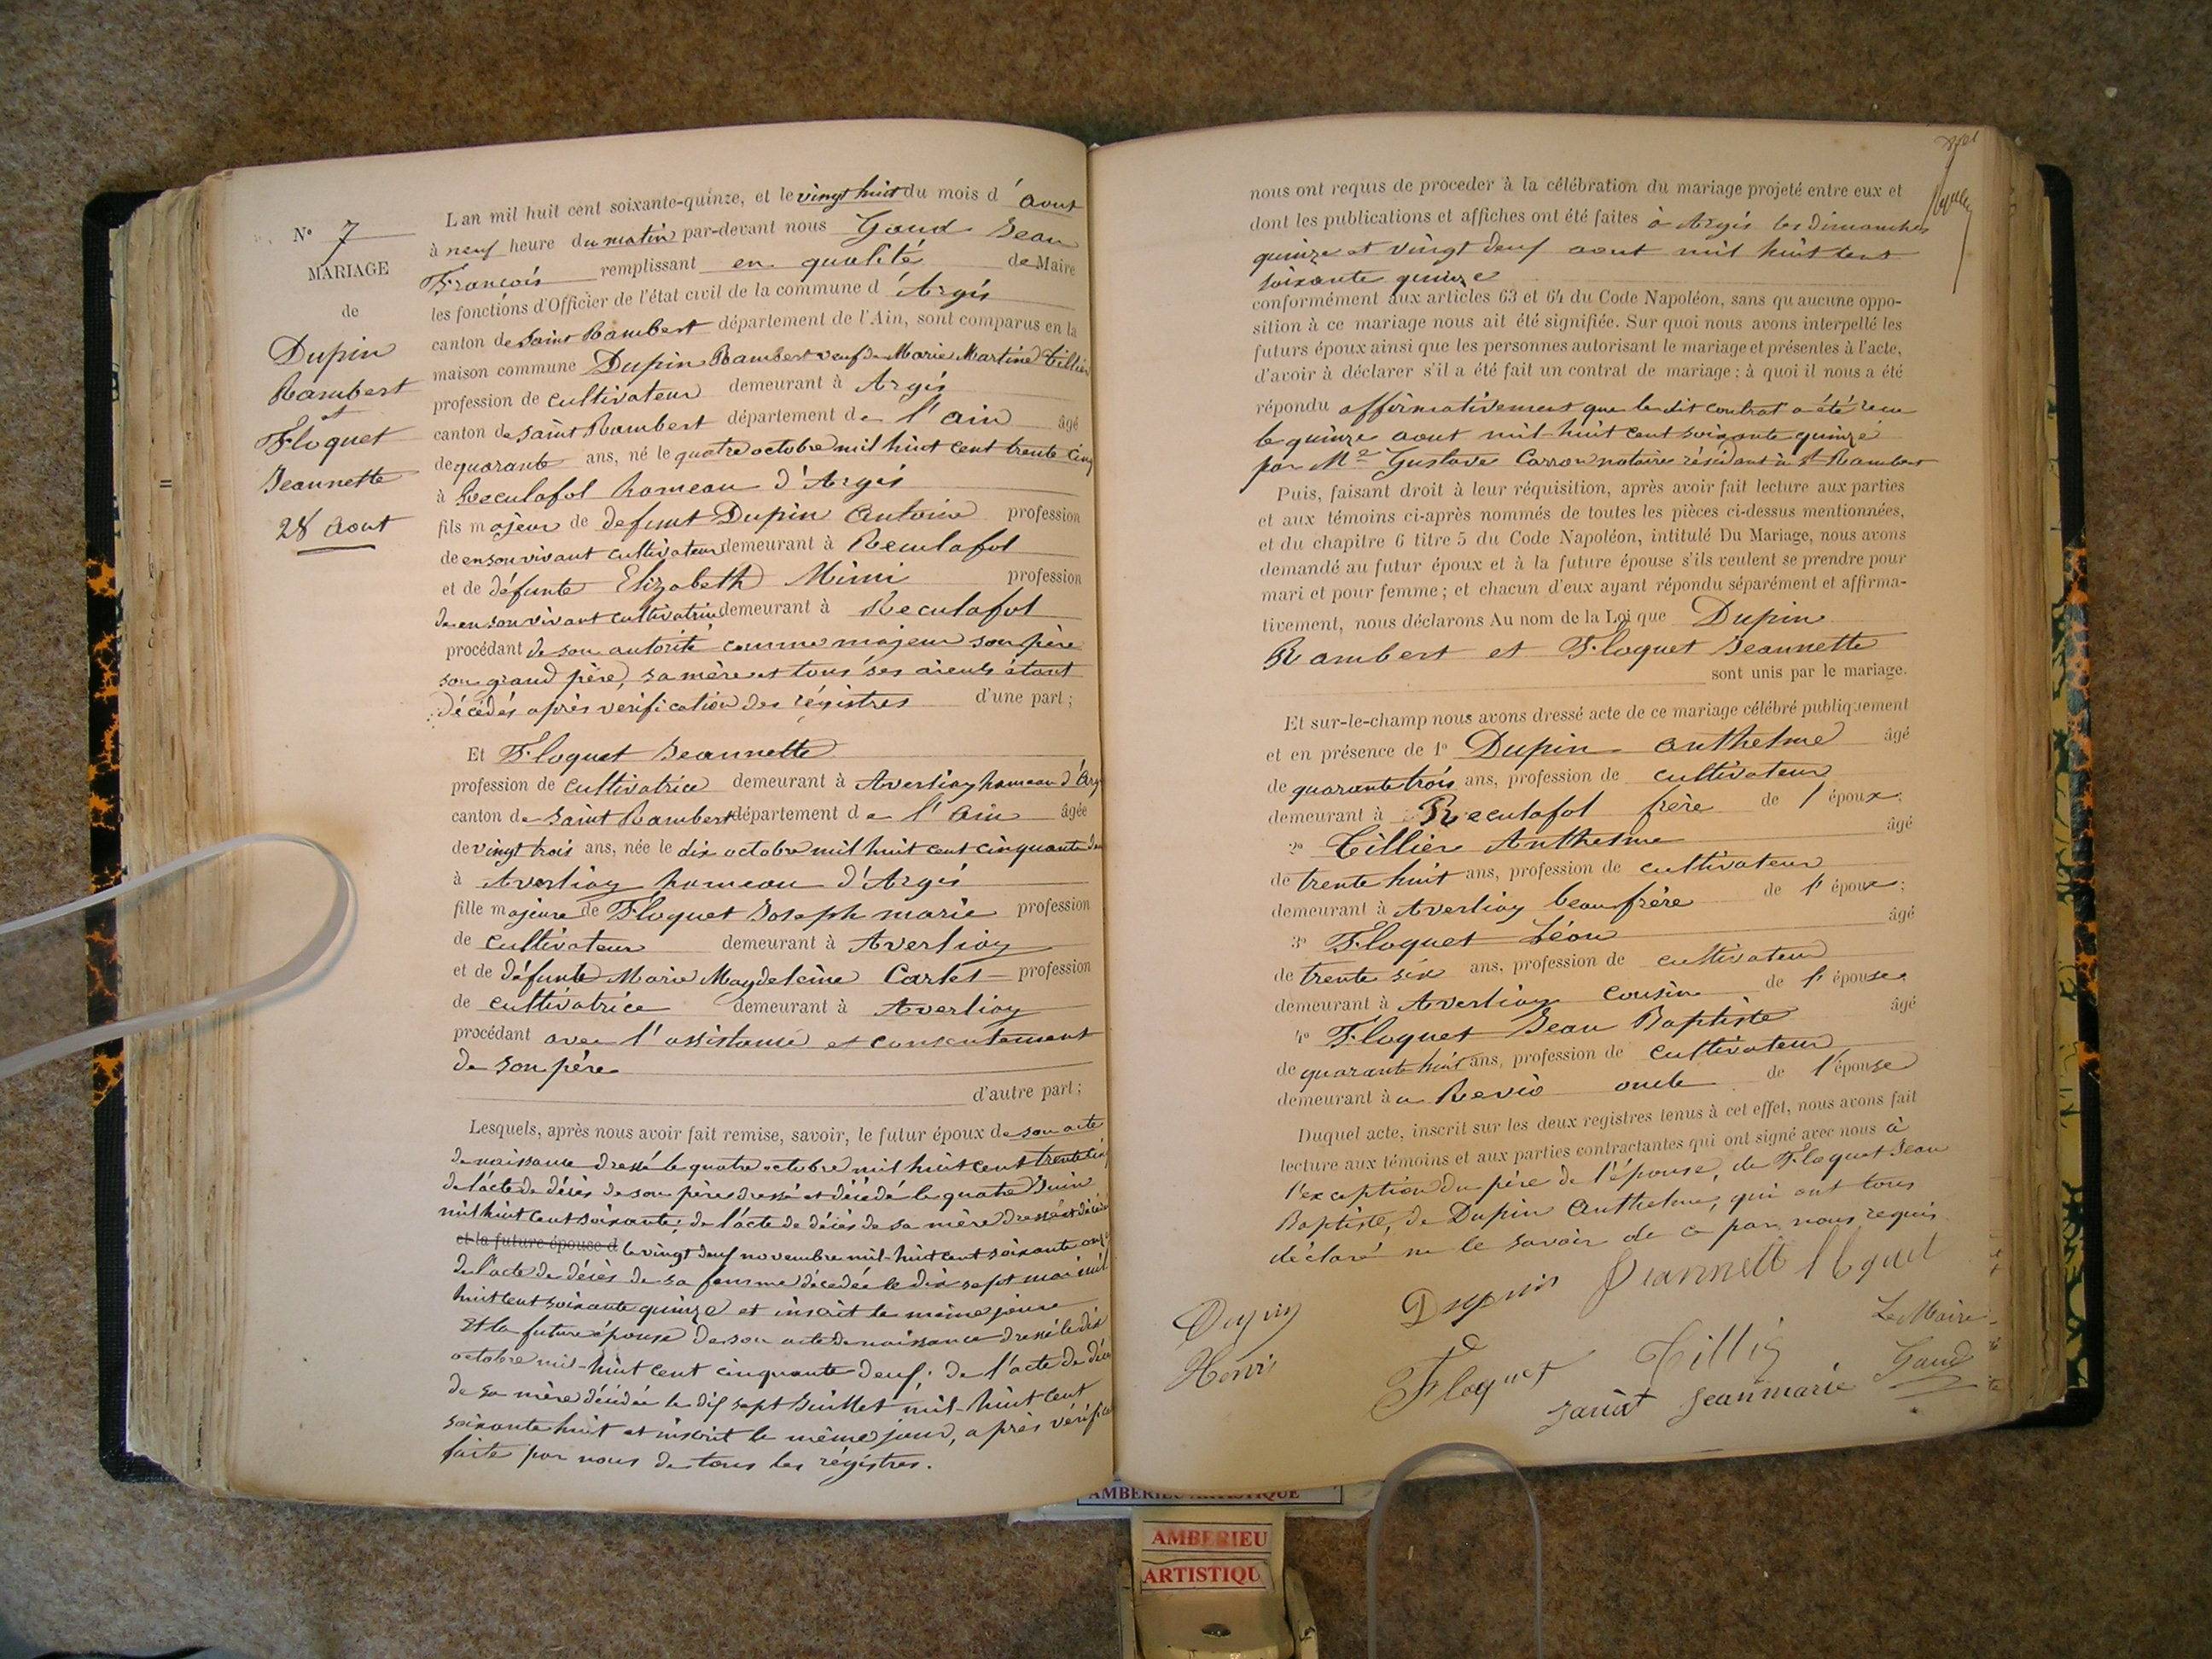 N° 7
MARIAGE
de
Dupin
Rambert
et
Floquet
Jeannette
28 Aout
L'an mil huit cent soixante-quinze, et le vingt huit du mois d'Aout
à neuf heure du matin par-devant nous Gaud Jean
François remplissant en qualité de Maire
les fonctions d'Officier de l'état civil de la commune d'Argis
canton de Saint Rambert département de l'Ain, sont comparus en la
maison commune Dupin Rambert veuf de Marie Martine Tillier
profession de cultivateur demeurant à Argis
canton de Saint Rambert département de l'Ain âgé
de quarante ans, né le quatre octobre mil huit cent trente cinq
à Reculafol hameau d'Argis
fils majeur de defunt Dupin Antoine profession
de en son vivant cultivateur demeurant à Reculafol
et de défunte Elizabeth Mimi profession
de en son vivant cultivatrice demeurant à Reculafol
procédant de son autorité comme majeur son père
son grand père, sa mère et tous ses aieuls étant
décédés après verification des régistres d'une part ;
Et Floquet Jeannette
profession de cultivatrice demeurant à Averliaz hameau d'Arg
canton de Saint Rambert département de l'Ain âgée
de vingt trois ans, née le dix octobre mil huit cent cinquante
à Averliaz hameau d'Argis
fille majeure de Floquet Joseph marie profession
de cultivateur demeurant à Averliaz
et de défunte Marie Magdeleine Carlet profession
de cultivatrice demeurant à Averliaz
procédant avec l'assistance et consentement
de son père
d'autre part ;
Lesquels, après nous avoir fait remise, savoir, le futur époux de son acte
de naissance dressé le quatre octobre mil huit cent trente cinq
de l'acte de décès de son père dressé et décédé le quatre Juin
mil huit cent soixante ; de l'acte de décès de sa mère dressé et décédée
et la future épouse d le vingt deuf novembre mil-huit cent soixante onze
de l'acte de décès de sa femme décedée le dix sept mai mil
huit cent soixante quinze et inscrit le même jour
Et la future épouse de son acte de naissance dressé le dix
octobre mil-huit cent cinquante deuf ; de l'acte de décès
de sa mère décédée le dix sept Juillet mil-huit cent
soixante huit et inscrit le même jour, après vérific
faite par nous de tous les régistres.
nous ont requis de proceder à la célébration du mariage projeté entre eux et
dont les publications et affiches ont été faites à Argis les dimanches
quinze et vingt deuf aout mil huit cent
soixante quinze
conformément aux articles 63 et 64 du Code Napoléon, sans qu'aucune oppo-
sition à ce mariage nous ait été signifiée. Sur quoi nous avons interpellé les
futurs époux ainsi que les personnes autorisant le mariage et présentes à l'acte,
d'avoir à déclarer s'il a été fait un contrat de mariage ; à quoi il nous a été
répondu affirmativement que le dit contrat a été recu
le quinze aout mil-huit cent soixante quinze
par Me Gustave Carron notaire résidant à St Rambert
Puis, faisant droit à leur réquisition, après avoir fait lecture aux parties
et aux témoins ci-après nommés de toutes les pièces ci-dessus mentionnées,
et du chapitre 6 titre 5 du Code Napoléon, intitulé Du Mariage, nous avons
demandé au futur époux et à la future épouse s'ils veulent se prendre pour
mari et pour femme ; et chacun d'eux ayant répondu séparément et affirma-
tivement, nous déclarons Au nom de la Loi que Dupin
Rambert et Floquet Jeannette
sont unis par le mariage.
Et sur-le-champ nous avons dressé acte de ce mariage célébré publiquement
et en présence de 1° Dupin Anthelme âgé
de quarante trois ans, profession de cultivateur
demeurant à Reculafol frère de l'époux ;
2° Tillier Anthelme âgé
de trente huit ans, profession de cultivateur
demeurant à Averliaz beau frère de l'époux ;
3° Floquet Léon âgé
de trente six ans, profession de cultivateur
demeurant à Averliaz cousin de l'épouse
4° Floquet Jean Baptiste âgé
de quarante huit ans, profession de cultivateur
demeurant à a Revio oncle de l'épouse
Duquel acte, inscrit sur les deux registres tenus à cet effet, nous avons fait
lecture aux témoins et aux parties contractantes qui ont signé avec nous à
l'exception du père de l'épouse, de Floquet Jean
Baptiste, de Dupin Anthelme, qui ont tous
déclaré ne le savoir de ce par nous requis
Dupin Jeannett floquet
Dupin
Henri
Floquet Tillié
Le Maire
Gaud
Jeanmarie
AMBERIEU ARTISTIQUE
AMBERIEU
ARTISTIQU